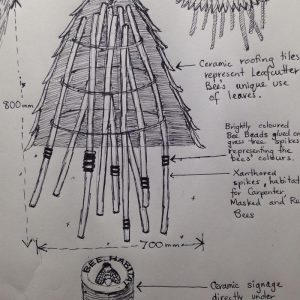 Ceramic roofing tiles
represent Leafcutter
Bees' unique use
of leaves.
800mm
Brightly coloured
Bee Beads glued on
grass tree spikes
representing the
bees' colours.
Xanthorrea
spikes, habitat
for Carpenter,
Masked and Re
Bees
700mm
BEE HABITAT
Ceramic signage
directly under